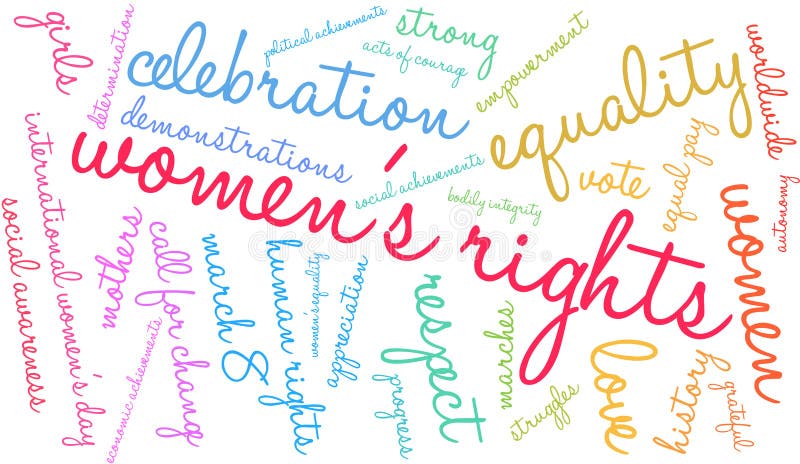 girls
determination
celebration
political achievements
strong
acts of courage
empowerment
equality
worldwide
demonstrations
women's rights
social achievements
bodily integrity
vote
equal pay
autonomy
international women's day
social awareness
mothers
call for change
economic achievements
march 8
human rights
women's equality
appreciation
progress
respect
marches
struggles
love
history
grateful
women
dreamstime